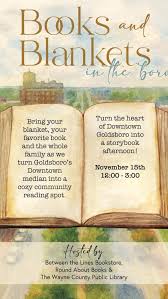 Books and
Blankets
in the boro
Bring your
blanket, your
favorite book
and the whole
family as we
turn Goldsboro's
Downtown
median into a
cozy community
reading spot.
Turn the heart
of Downtown
Goldsboro into
a storybook
afternoon!
November 15th
12:00 - 3:00
Hosted by
Between the Lines Bookstore,
Round About Books &
The Wayne County Public Library